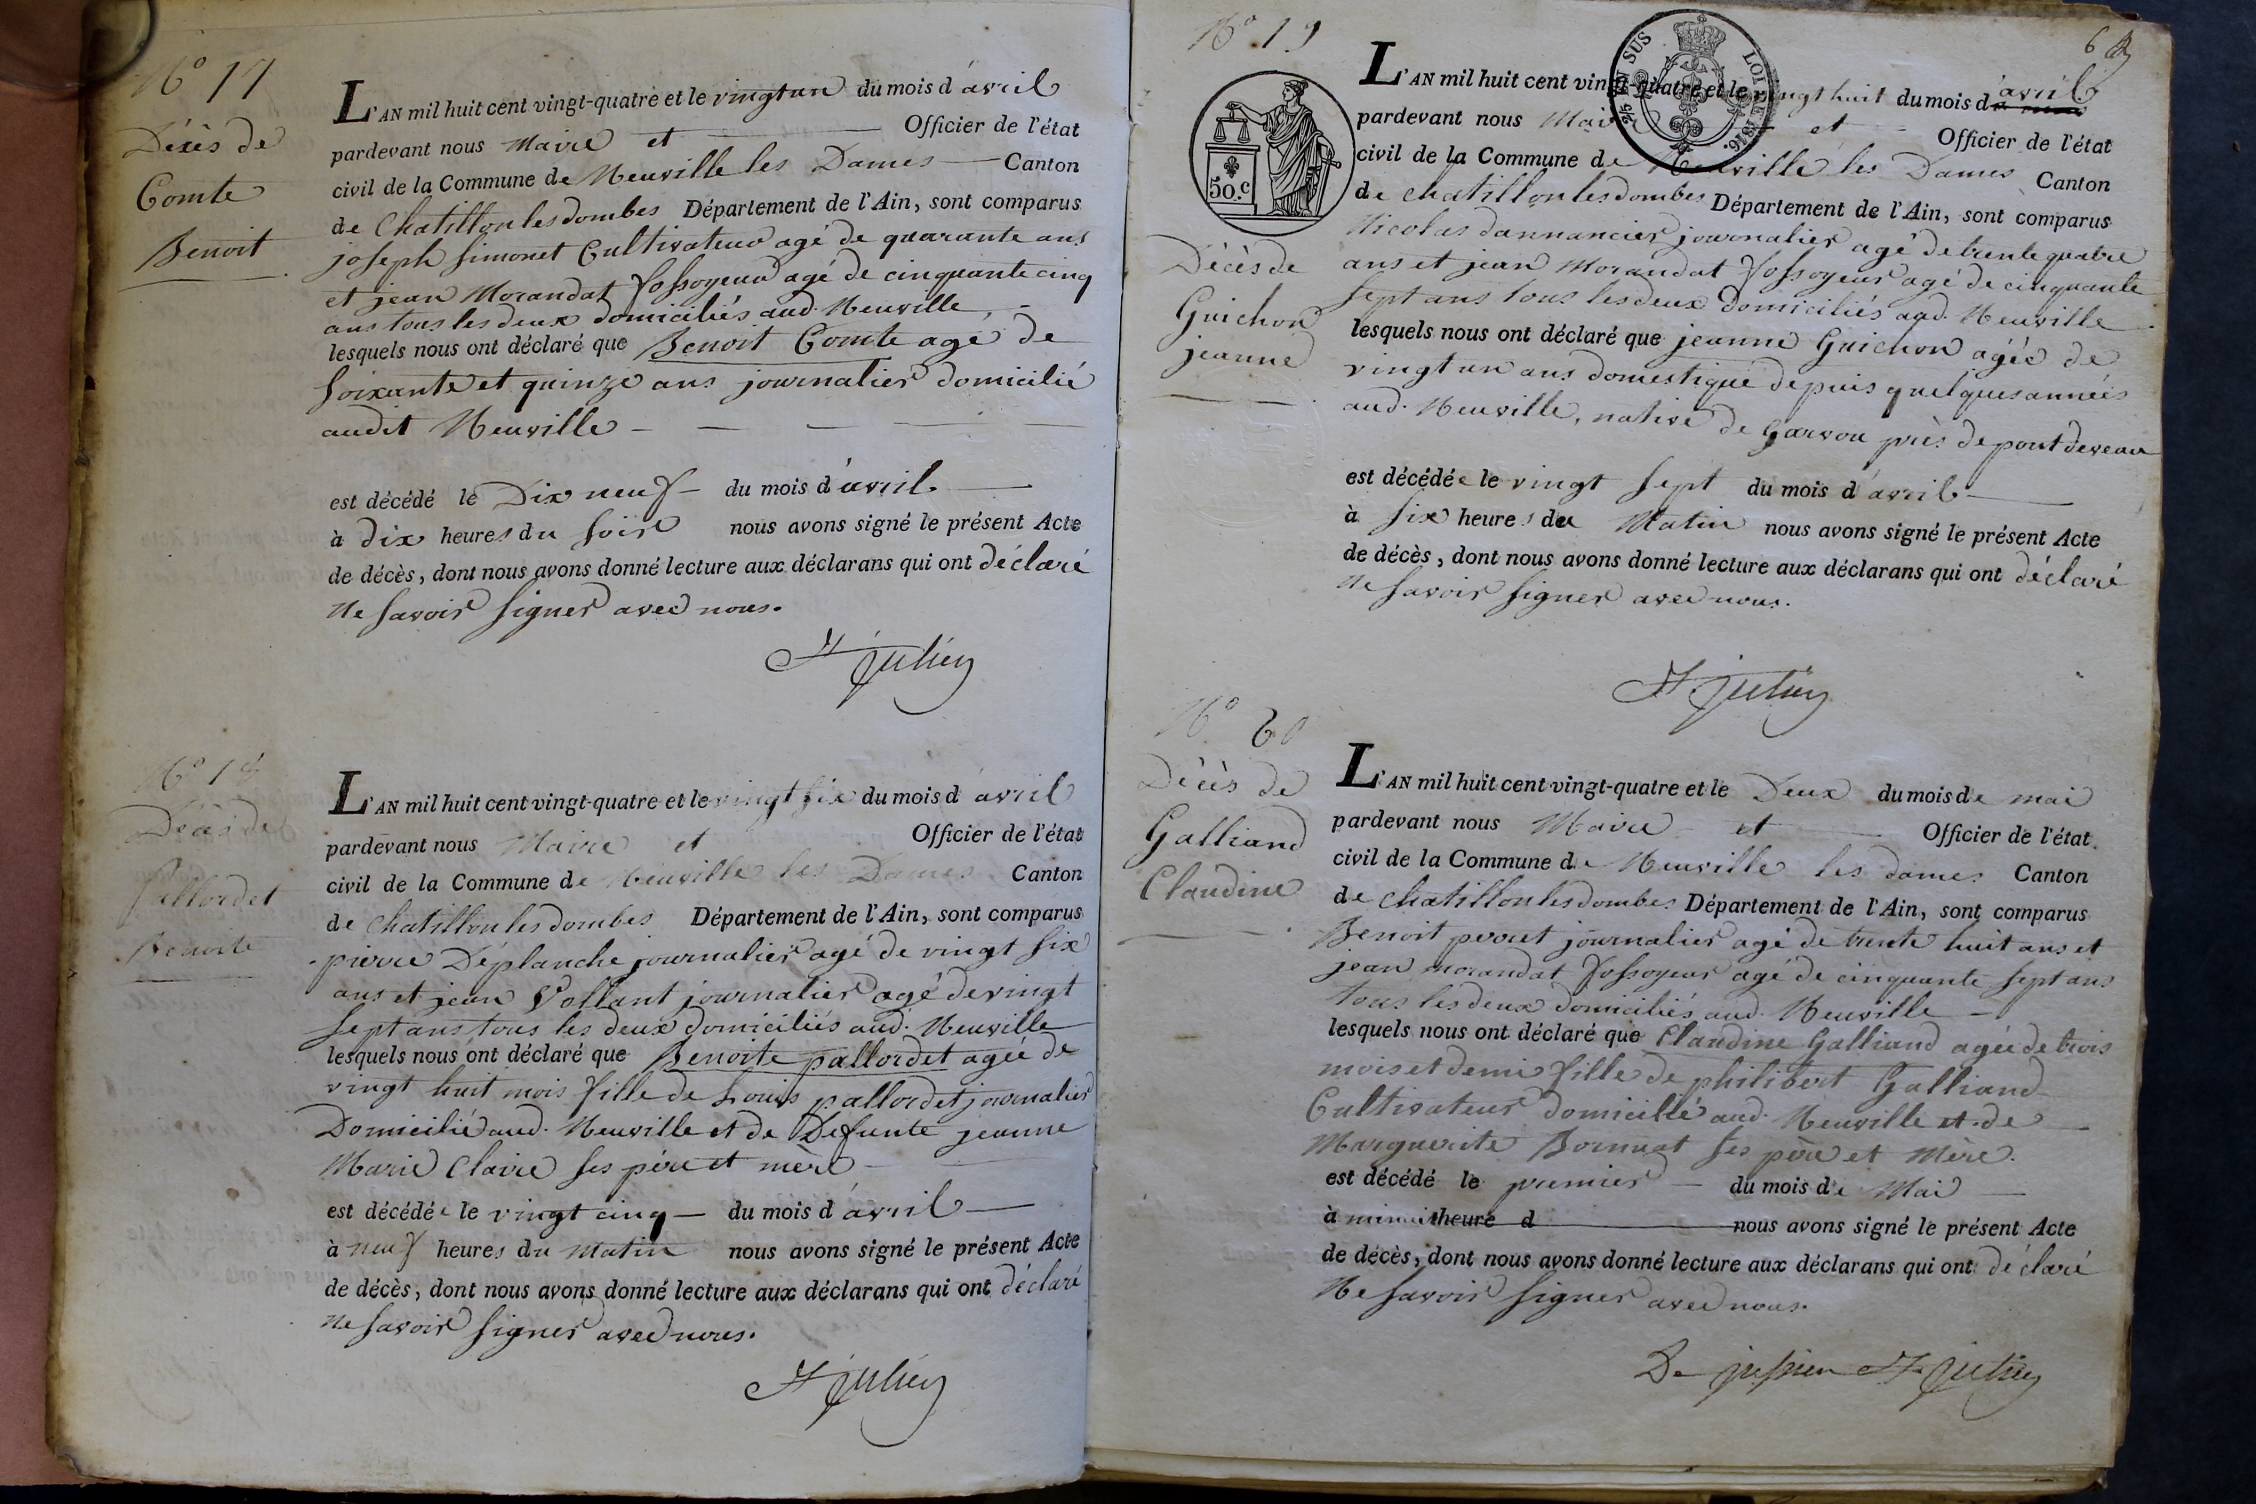 N° 17
Décès de
Comte
Benoit
L'AN mil huit cent vingt-quatre et le vingt un du mois d'avril
pardevant nous Maire et Officier de l'état
civil de la Commune de Neuville les Dames Canton
de Chatillon les dombes Département de l'Ain, sont comparus
joseph simonet Cultivateur agé de quarante ans
et jean Morandat fossoyeur agé de cinquante cinq
ans tous les deux domiciliés aud. Neuville
lesquels nous ont déclaré que Benoit Comte agé de
soixante et quinze ans journalier domicilié
audit Neuville
est décédé le Dix neuf du mois d'avril
à dix heures du soir nous avons signé le présent Acte
de décès, dont nous avons donné lecture aux déclarans qui ont déclaré
Ne savoir signer avec nous.
St julien
N° 18
Décès de
pallordet
Benoite
L'AN mil huit cent vingt-quatre et le vingt six du mois d'avril
pardevant nous Maire et Officier de l'état
civil de la Commune de Neuville les Dames Canton
de Chatillon les dombes Département de l'Ain, sont comparus
pierre Déplanche journalier agé de vingt six
ans et jean Vollant journalier agé de vingt
sept ans tous les deux domiciliés aud. Neuville
lesquels nous ont déclaré que Benoite pallordet agée de
vingt huit mois fille de Louis pallordet journalier
Domicilié aud. Neuville et de Defunte jeanne
Marie Claire ses père et mère
est décédée le vingt cinq du mois d'avril
à neuf heures du Matin nous avons signé le présent Acte
de décès, dont nous avons donné lecture aux déclarans qui ont déclaré
Ne savoir signer avec nous.
St julien
N° 19
6
LOI DE 1816.
50.c
Décès de
Guichon
jeanne
L'AN mil huit cent vingt-quatre et le vingt huit du mois d'avril
pardevant nous Maire et Officier de l'état
civil de la Commune de Neuville les Dames Canton
de Chatillon les dombes Département de l'Ain, sont comparus
Nicolas dannancier journalier agé de trente quatre
ans et jean Morandat fossoyeur agé de cinquante
sept ans tous les deux Domiciliés aud. Neuville
lesquels nous ont déclaré que jeanne Guichon agée de
vingt un ans domestique depuis quelques années
aud. Neuville, native de garvou près de pont de veau
est décédée le vingt sept du mois d'avril
à six heures du Matin nous avons signé le présent Acte
de décès, dont nous avons donné lecture aux déclarans qui ont déclaré
Ne savoir signer avec nous.
St julien
N° 60
Décès de
Galliand
Claudine
L'AN mil huit cent vingt-quatre et le Deux du mois de mai
pardevant nous Maire et Officier de l'état
civil de la Commune de Neuville les dames Canton
de Chatillon les dombes Département de l'Ain, sont comparus
Benoit perret journalier agé de trente huit ans et
jean morandat fossoyeur agé de cinquante sept ans
tous les deux domiciliés aud. Neuville
lesquels nous ont déclaré que Claudine Galliand agée de trois
mois et demi fille de philibert Galliand
Cultivateur domicilié aud. Neuville et de
Marguerite Bornuat ses père et Mère.
est décédé le premier du mois de Mai
à minuit heure d nous avons signé le présent Acte
de décès, dont nous avons donné lecture aux déclarans qui ont déclaré
Ne savoir signer avec nous.
De jussieu St julien